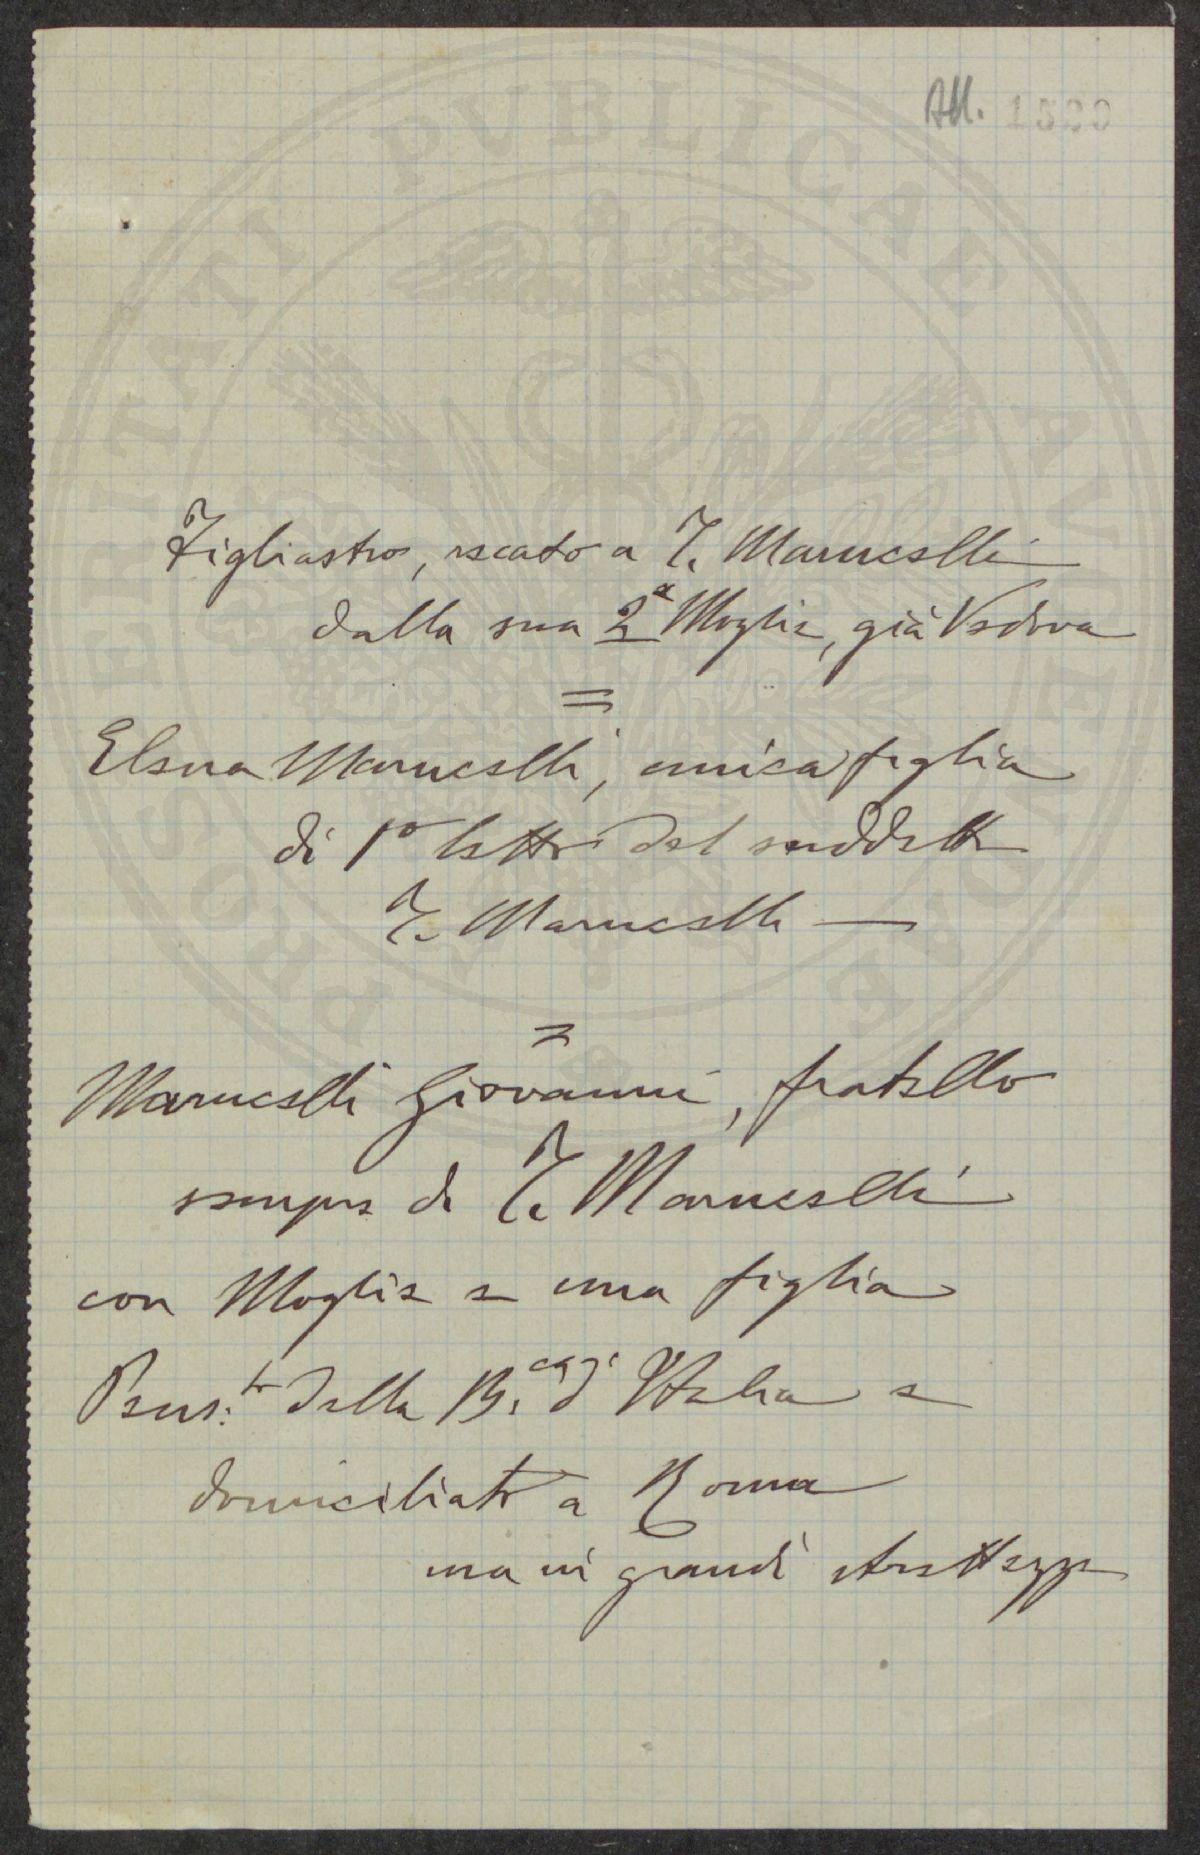 All. 1520
Figliastro, recato a F. Marucelli
dalla sua 2ª Moglie, già Vedova
=
Elena Marucelli, unica figlia
di 1º letto del suddetto
F. Marucelli —
=
Marucelli Giovanni, fratello
sempre di F. Marucelli
con Moglie e una figlia
Pens.to della B.ca d'Italia e
domiciliato a Roma
ma in grandi strettezze
PROSPERITATI PUBLICAE AUGENDAE